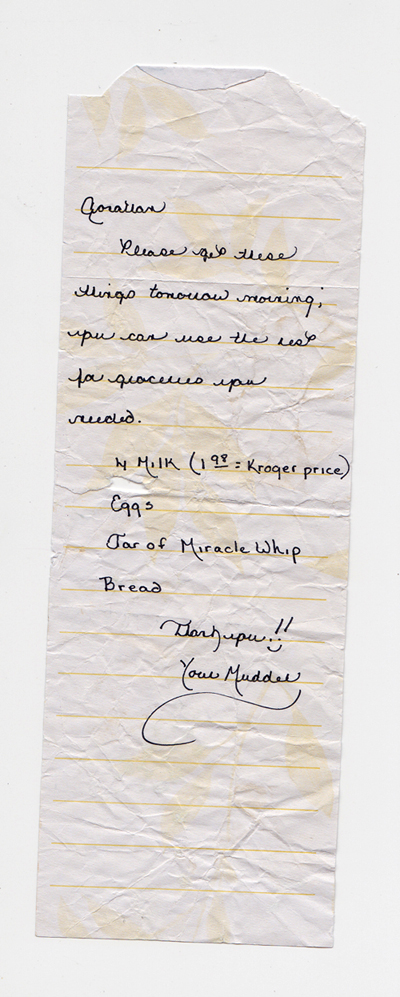 Please get these
things tomorrow morning;
you can use the rest
for groceries you
needed.
4 Milk (1 98 = Kroger price)
Eggs
Jar of Miracle Whip
Bread
Thank you!!
Your Mudder